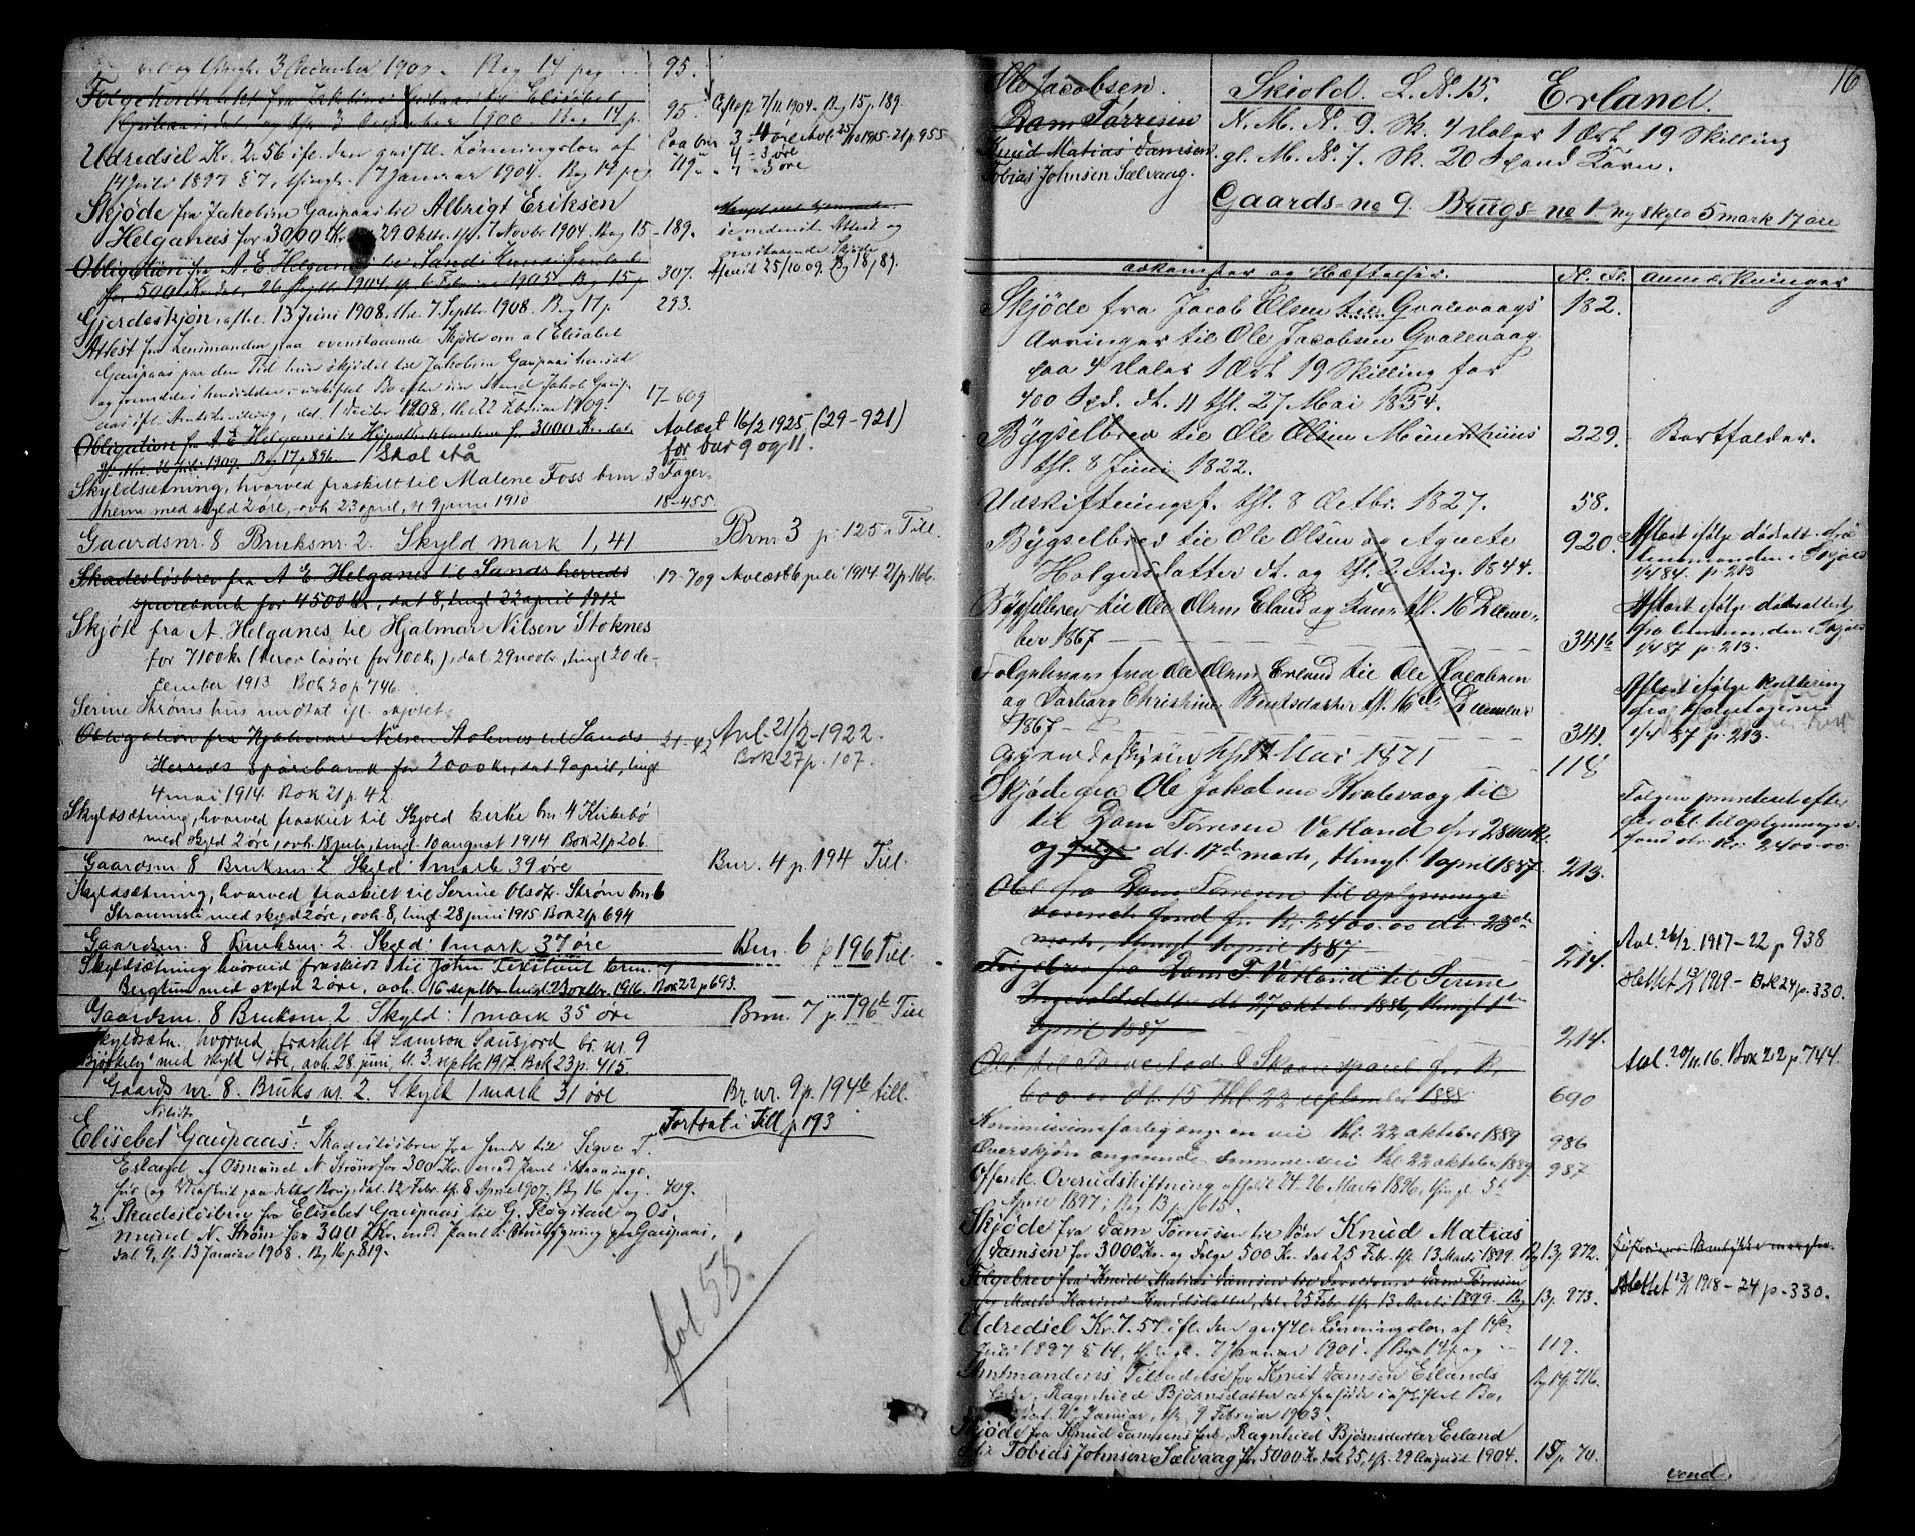 3 December 1900. Bog 14 pag 95.
Folgekontrakt fra Jakobine Gaupaas til Elisabet
Gaupaas, dat. og thgl. 3 December 1900. Bog 14 p. 95.
Aflæst 7/11 1904. Bog 15 p. 189.
Udredsel Kr. 2.56 ifl. den geistl. Lønningslov af
14 Juli 1897 § 7, thingl. 7 Januar 1904. Bog 14 pag 119
Paa bnr 3 4 øre Avl 25/11 1915 - 21 p 955
" 4 - 3 øre
" 7 - 3 øre
Skjøde fra Jakobine Gaupaas til Albrigt Eriksen
Helganes for 3000 Kr. 29 Oktbr. thl. 7 Novbr 1904. Bog 15 - 189.
se nedenst. Attest og
ovenstaaende Skjøde
Obligation fra A. E. Helganes til Sands
for 500 Kr. dat. 26 1904 tl. 6 Februar 1905. Bog 15 p 307.
Aflæst 25/10 09. Bog 18, 89.
Gjerdeskjøn, afh. 13 Juni 1908, thl. 7 Septbr 1908. Bog 17 p. 293.
Attest fra Lensmanden paa ovenstaaende Skjøde om at Elisabet
Gaupaas paa den Tid hun skjødet til Jakobine Gaupaas hensad
og fremdeles hensidder i uskiftet Bo efter sin Mand Jakob Gaup-
aas ifl. Amtsbevilling, dat. 1 Decbr 1908, thl. 22 Februar 1909. 17 - 609
Obligation fra A. E. Helganes til Hypothekbanken for 3000 Kr. dat.
thl. 26 juli 1909. Bog 17, p 896. Skal stå
Avlæst 16/2 1925 (29 - 921)
for bnr 9 og 11.
Skyldsætning, hvorved fraskilt til Malene Foss bnr 3 Fager-
heim med skyld 2 øre, avh. 23 april, tl 9 juni 1910 18 - 455
Gaardsnr. 8 Bruksnr. 2. Skyld mark 1,41
Brnr 3 p. 125 i Till.
Skadesløsbrev fra A. E. Helganes til Sands herreds
sparebank for 4500 kr, dat 8, tingl 22 april 1912 19 - 709
Avlæst 6 juli 1914. 21 p 166.
Skjøte fra A. Helganes til Hjalmar Nilsen Stoknes
for 7100 kr (derav løsøre for 100 kr), dat 29 novbr, tingl 20 de-
cember 1913 Bok 20 p. 746.
Serine Strøms hus undtat ifl. skjøtet.
Obligation fra Hjalmar Nilsen Stoknes til Sands
Herreds sparebank for 2000 kr, dat 9 april, tingl
4 mai 1914. Bok 21 p. 42
21 - 42
Avl. 21/2 - 1922.
Bok 27 p. 107.
Skyldsætning, hvorved fraskilt til Skjold kirke bnr. 4 Kirkebø
med skyld 2 øre, avh. 18 juli, tingl. 10 august 1914 Bok 21 p 206.
Gaardsnr 8 Bruksnr. 2 Skyld 1 mark 39 øre
Bnr. 4 p. 194 Till.
Skyldsætning, hvorved fraskilt til Serine Olsdtr. Strøm bnr 6
Straumsli med skyld 2 øre, avh. 8, tingl 28 juni 1915 Bok 21 p 694
Gaardsnr. 8 Bruksnr. 2. Skyld: 1 mark 37 øre
Bnr. 6 p 196 Till.
Skyldsætning hvorved fraskilt til John bnr. 7
Bergtun med skyld 2 øre, avh. 16 septbr tingl 2 oktbr. 1916. Bok 22 p 693.
Gaardsnr. 8 Bruksnr. 2. Skyld: 1 mark 35 øre
Bnr. 7 p. 196 b Till
Skyldsætn. hvorved fraskilt til Samson Sausjord br. nr. 9
"Bjørkely" med skyld 4 øre, avh. 28. juni, tl. 3. septbr 1917. Bok 23 p. 415.
Gaards nr. 8. Bruks nr. 2. Skyld 1 mark 31 øre
Br. nr. 9 p. 194 b till.
Fortsat i Till p 193
Elisebet Gaupaas: 1 Skadesløsbrev fra hende til Sigve T.
Erland og Osmund N. Strøm for 300 Kr. med Pant i Vaanings-
hus (og Utaflut) paa dette Brug, dat. 12 Febr. thl. 8 April 1907. Bog 16 pag. 409.
2. Skadesløsbrev fra Elisebet Gaupaas til G. Fløgstad og Os-
mund N. Strøm for 300 Kr. med Pant i Paabygning paa Gaupaas,
dat. 9, th. 13 Januar 1908. Bog 16 p 819.
fol 58.
16
Ole Jacobsen.
Dam Tørresen
Knud Matias Damsen.
Tobias Johnsen Sælvaag.
Skiold. L. N. 15. Erland.
N. M. N. 9. Sk. 4 Daler 1 Ort 19 Skilling
gl. M. N. 7. Sk. 20 Spand Korn.
Gaards-no 9. Brugs-no 1. ny skyld 5 mark 17 øre
Adkomster og Hæftelser. N. Fl. Anmærkninger
Skjøde fra Jacob Olsen til Gvalevaags 182.
Arvinger til Ole Jacobsen Gvalevaag
paa 4 Daler 1 Ort 19 Skilling for
400 Spd. dt. 11 thl. 27 Mai 1854.
Bygselbrev til Ole Olsen Munkhuus 229. Bortfalder.
thl. 8 Juni 1822.
Udskiftningsf. thl. 8 Octbr. 1827. 58.
Bygselbrev til Ole Olsen og Agnete 920.
Holgersdatter dt. og thl. 2. Aug. 1844.
Aflæst ifølge dødsatt. fra
lensmanden i Skjold
1/4 87. p. 213
Bygselbrev til Ole Olsen Erland og Kone thl. 16 Decem-
ber 1867 341 b
Aflæst ifølge dødsattest
fra lensmanden i Skjold
1/4 87 p. 213.
Folgebrev fra Ole Olsen Erland til Ole Jacobsen
og Barbara Christine Bentsdatter thl. 16de December
1867 341.
Aflæst ifølge kvittering
fra Folgetagerne
1/4 87 p. 213.
Gjerdeskjøn thl 1 Mai 1871 118
Skjøde fra Ole Jakobsen Kvalevaag til
til Dam Tørresen Vatland for 2800 kr.
og folge dt. 17d marts, thingl. 1 april 1887 213.
Folgen prioriteret efter
obl. til oplysnings-
fond str. kr. 2400.00
Obl. fra Dam Tørresen til oplysnings-
væsenets fond for Kr. 2400.00 dt. 23de
marts, thingl 1 april 1887. 214.
Avl. 26/2 1917 - 22 p 938
Folgebrev fra Dam T. Vatland til Serine
Ingevaldsdatter dt. 27 oktober 1886, thingl. 1ste
april 1887 214.
Slettet 13/1 1919 - Bok 24 p. 330.
Obl. til Skaaresparek. for Kr.
600.00 dt. 15 thl. 22 september 1888 690
Avl. 20/11. 16. Bok 22 p 744.
Kommissionsforlig ang. en vei thl. 22 oktober 1889 986
Overskjøn angaaende samme vei thl 22 oktober 1889 987
Offentl. Overudskiftning afholdt 24 - 26 Marts 1896, thingl. 5te
April 1897; Bog 13 p 615.
Skjøde fra Dam Tørresen til Søn Knud Matias
Damsen for 3000 Kr. og Folge 500 Kr. dat 25 Febr. thl. 13 Marts 1899. Bog 13 p. 972.
Folgebrev fra Knud Matias Damsen til Forældrene Dam Tørresen
og Marta Karine Knudsdatter, dat. 25 Febr thl. 13 Marts 1899. Bog 13 p. 973.
Slettet 13/1 1918 - 24 p - 330.
Udredsel Kr. 7.57 ifl. den geistl. Lønningslov af 14de
Juli 1897 § 14, thingl. 7 Januar 1901. Bog 14 pag 119.
Amtmandens Tilladelse for Knut Damsen Erlands
Enke, Ragnhild Bjørnsdatter at hensidde i uskiftet Bo, Bog 14 p. 716.
dat. Januar, thl. 9 Februar 1903.
Skjøde fra Knud Damsens Enke, Ragnhild Bjørnsdatter Erland
til Tobias Johnsen Sælvaag for 5000 Kr. dat 25, thl. 29 August 1904. 15 p. 70.
vend.